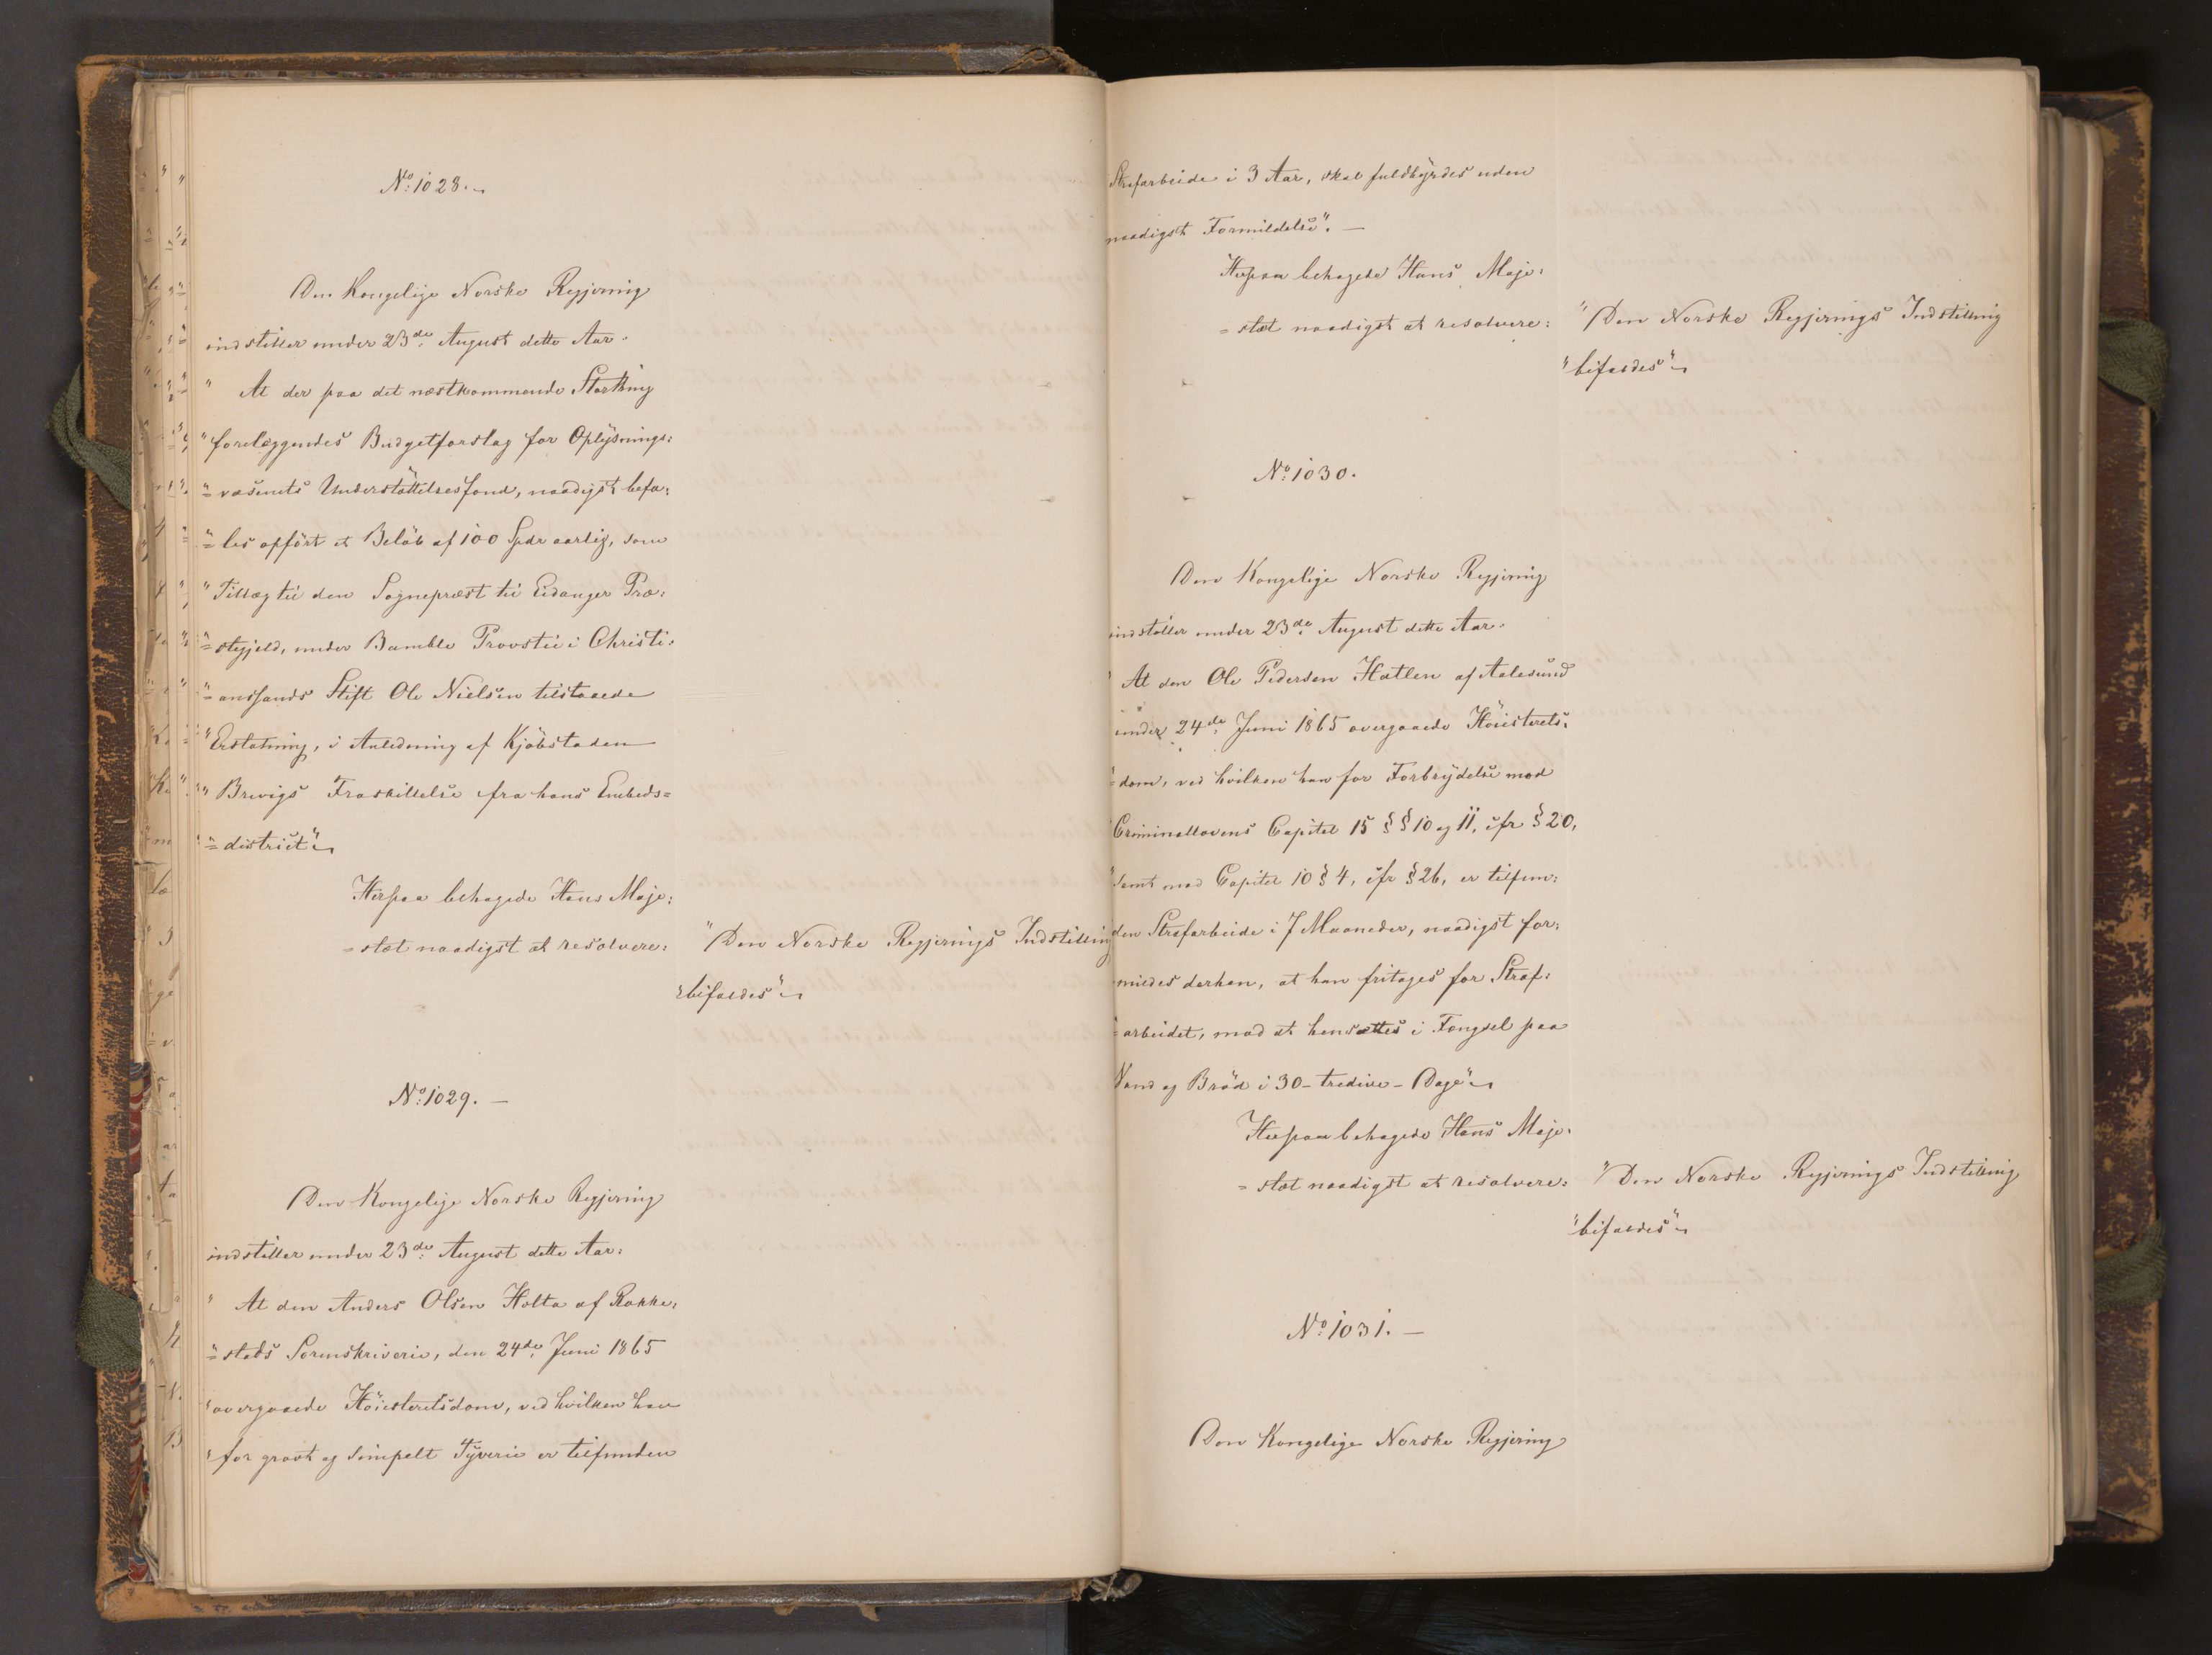 No. 1028.
Den Kongelige Norske Regjering
indstiller under 23de August dette Aar.
" At der paa det næstkommende Storthing
" forelæggendes Budgetforslag for Oplysnings:
"= væsenets Understøttelsesfond, naadigst befa:
"= les opført et Beløb af 100 Spdr aarlig, som
" Tillæg til den Sognepræst til Eidanger Præ:
"= stegjeld, under Bamble Provsti i Christi:
"= anssands Stift Ole Nielsen tilstaaede
" Erstatning, i Anledning af Kjøbstaden
" Brevigs Fraskillelse fra hans Embeds=
"= district".
Herpaa behagede Hans Maje:
= stæt naadigst at resolvere:
" Den Norske Regjerings Indstilling
" bifaldes".
No. 1029. —
Den Kongelige Norske Regjering
indstiller under 23de August dette Aar:
" At den Anders Olsen Holta af Rakke:
"= stads Sorenskriveri, den 24de Juni 1865
" overgaaede Høiesteretsdom, ved hvilken han
" for grovt og simpelt Tyveri er tilfunden
Strafarbeide i 3 Aar, skal fuldbyrdes uden
naadigst Formildelse". —
Herpaa behagede Hans Maje:
= stæt naadigst at resolvere:
" Den Norske Regjerings Indstilling
" bifaldes".
No. 1030.
Den Kongelige Norske Regjering
indstiller under 23de August dette Aar.
" At den Ole Pedersen Hatlen af Aalesund
under 24de Juni 1865 overgaaede Høiesterets:
"= dom, ved hvilken han for Forbrydelse mod
" Criminallovens Capitel 15 §§ 10 og 11, cfr § 20,
" samt mod Capitel 10 § 4, cfr § 26, er tilfun:
den Strafarbeide i 7 Maaneder, naadigst for:
mildes derhen, at han fritages for Straf:
"= arbeidet, mod at hensættes i Fængsel paa
Vand og Brød i 30 - tredive - Dage".
Herpaa behagede Hans Maje:
= stæt naadigst at resolvere:
" Den Norske Regjerings Indstilling
" bifaldes".
No. 1031. —
Den Kongelige Norske Regjering